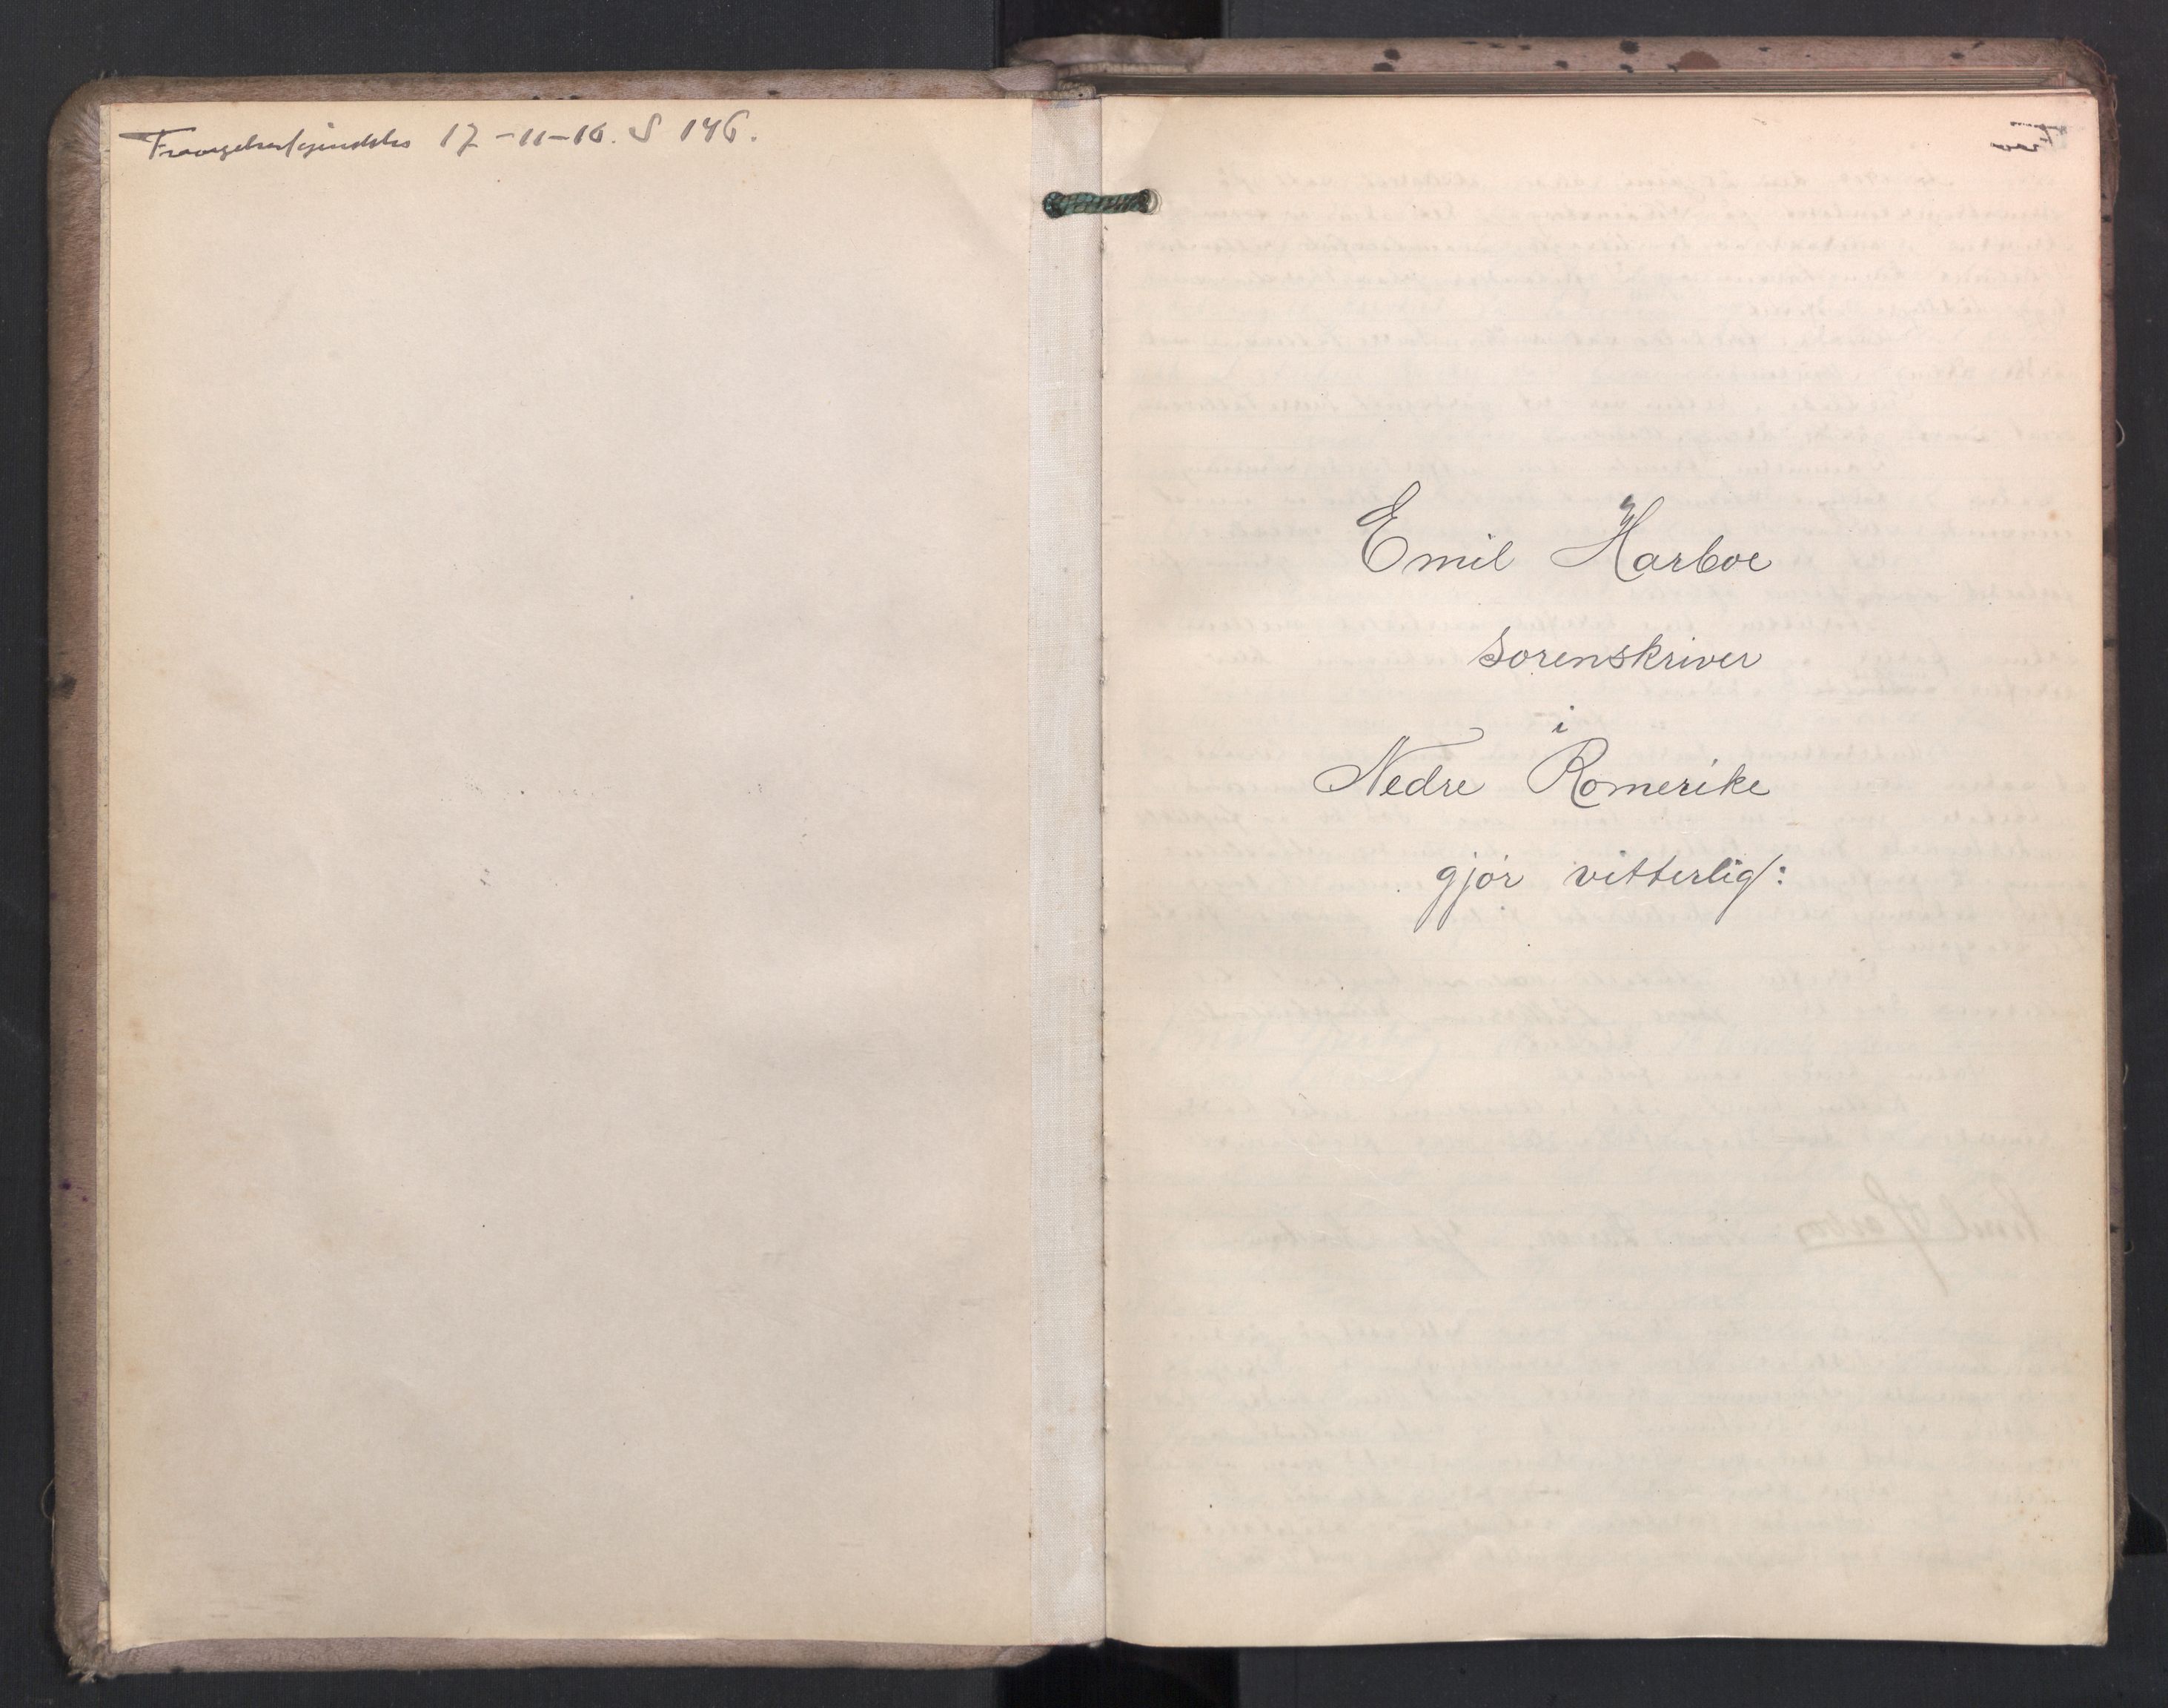 Fravigelseskjendelse 17-11-16. S 146.
Emil Harboe
sorenskriver
i
Nedre Romerike
gjør vitterlig: